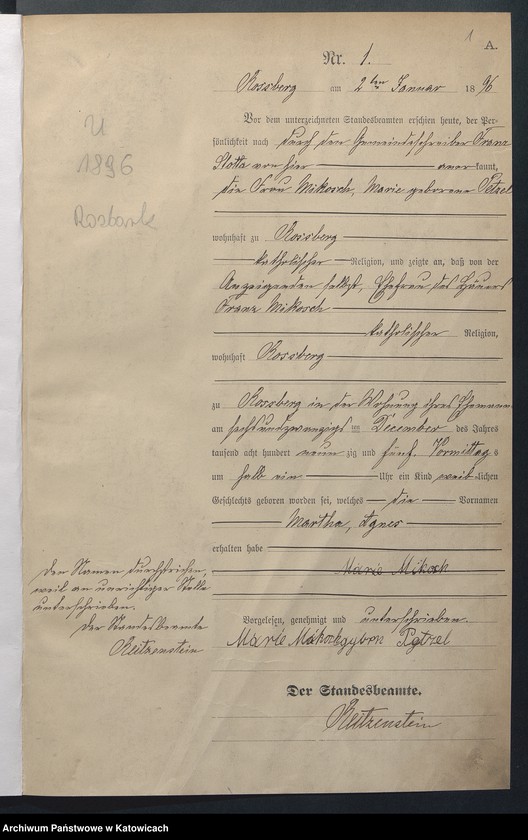 1
A.
Nr. 1.
Rossberg am 2ten Januar 1896
Vor dem unterzeichneten Standesbeamten erschien heute, der Per-
sönlichkeit nach durch den Gemeindeschreiber Franz
Slotta von hier anerkannt,
die Frau Mikosch, Marie geborene Petzel
wohnhaft zu Rossberg
katholischer Religion, und zeigte an, daß von der
Anzeigenden selbst, Ehefrau des Häuers
Franz Mikosch
katholischer Religion,
wohnhaft Rossberg
zu Rossberg in der Wohnung ihres Ehemanns
am sechsundzwanzigs ten December des Jahres
tausend acht hundert neun zig und fünf Vormittags
um halb ein Uhr ein Kind weiblichen
Geschlechts geboren worden sei, welches die Vornamen
Martha, Agnes
erhalten habe
Marie Mikosch
Den Namen durchstrichen,
weil an unrichtiger Stelle
unterschrieben.
Der Standesbeamte
Reitzenstein
Vorgelesen, genehmigt und unterschrieben.
Marie Petzel
Der Standesbeamte.
Reitzenstein
U
1896
Rozbark
Archiwum Państwowe w Katowicach